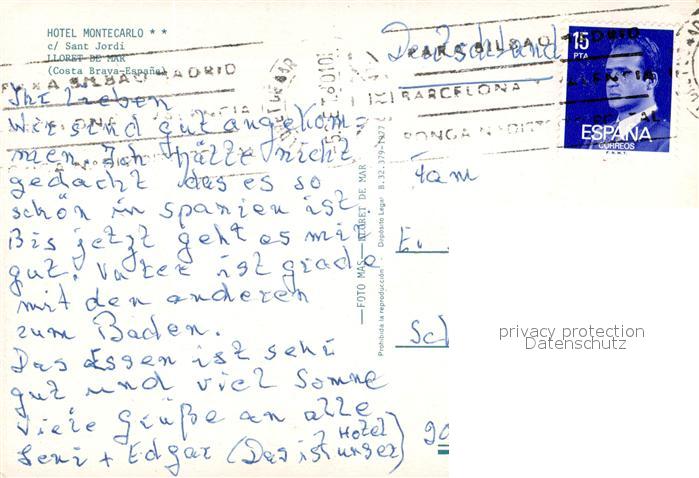 HOTEL MONTECARLO * *
c/ Sant Jordi
LLORET DE MAR
(Costa Brava-España)
Ihr lieben
Wir sind gut angekom=
men. Ich hätte nicht
gedacht das es so
schön in spanien ist
Bis jetzt geht es mir
gut. Vater ist grade
mit den anderen
zum Baden.
Das Essen ist sehr
gut und viel Sonne
Viele Grüße an alle
Leni + Edgar (Das ist unser Hotel)
FOTO MAS - LLORET DE MAR
Prohibida la reproducción - Depósito Legal B. 32.379-1977
Deutschland
PARA BILBAO MADRID
VALENCIA
BARCELONA
PONGA N.DISTRITO POSTAL
15
PTA
ESPAÑA
CORREOS
F.N.M.T.
Fam
Sch
90
privacy protection
Datenschutz